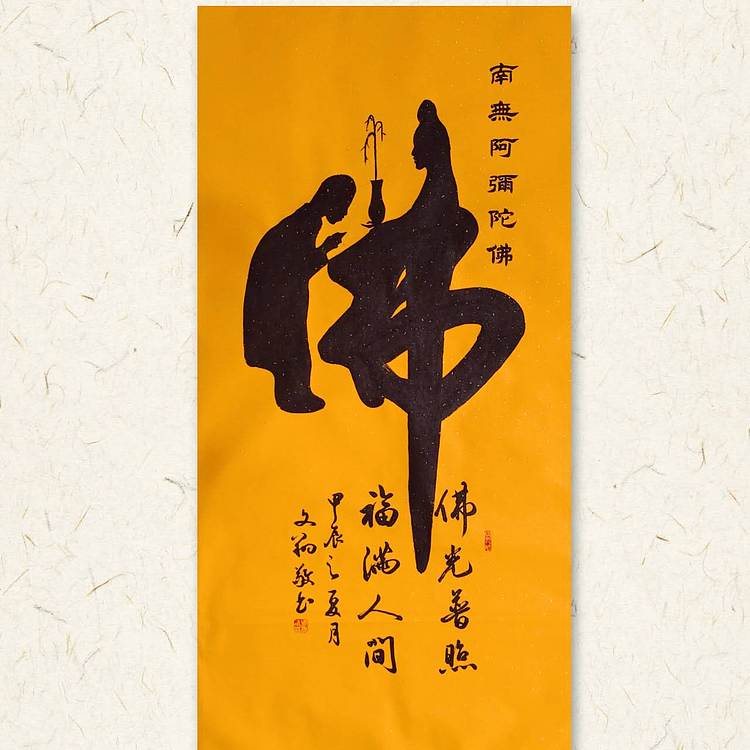 南無阿彌陀佛
佛
佛光普照
福滿人間
甲辰之夏月
文翰敬书